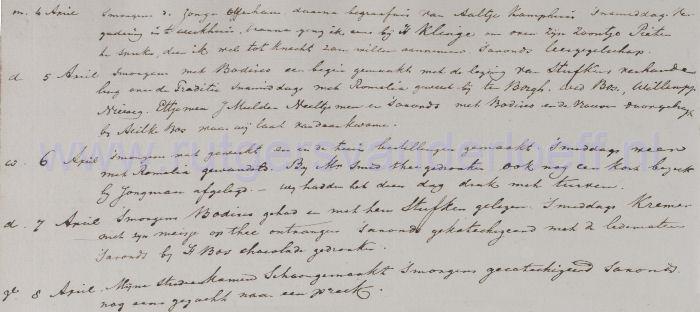 m. 4 April Smorgens de Jonge Offerhaus daarna begraafnis van Aaltje Kamphuis Snamiddag Ver
gadering in 't werkhuis, daarna ging ik eens bij H Klinge om over zijn Zoontje Pieter
te spreken, dien ik wel tot knecht zou willen aannemen Savonds leesgezelschap.
d 5 April Smorgens met Bodisco een begin gemaakt met de lezing van Stufkens verhande
ling over de Traditie Snamiddags met Romelia geweest bij ten Bergh. Wed Bos,
Nieweg. Ettje men J Mulder Neeltje men en Savonds met Bodisco en de Vrouw doorgebragt
bij Hilke Bos maar wij laat vandaan kwamen.
w. 6 April Smorgens nat gemaakt en in de tuin bestellingen gemaakt Smiddags weer
met Romelia gewandeld. By Mr Smid thee gedronken ook nog een kort bezoek
by Jongman afgelegd — wy hadden het deze dag druk met turven.
d. 7 April Smorgens Bodisco gehad en met hem Stufken gelezen. Smiddags Kremer
met zyn meisje op thee ontvangen Savonds gekatechiseerd met de ledematen
Savonds bij H Bos chocolade gedronken.
8 April. Mijne Studeerkamer Schoongemaakt Smorgens gecatechiseerd Savonds
nog eens gezocht naar een preek.
www.rutgersvanderloeff.nl